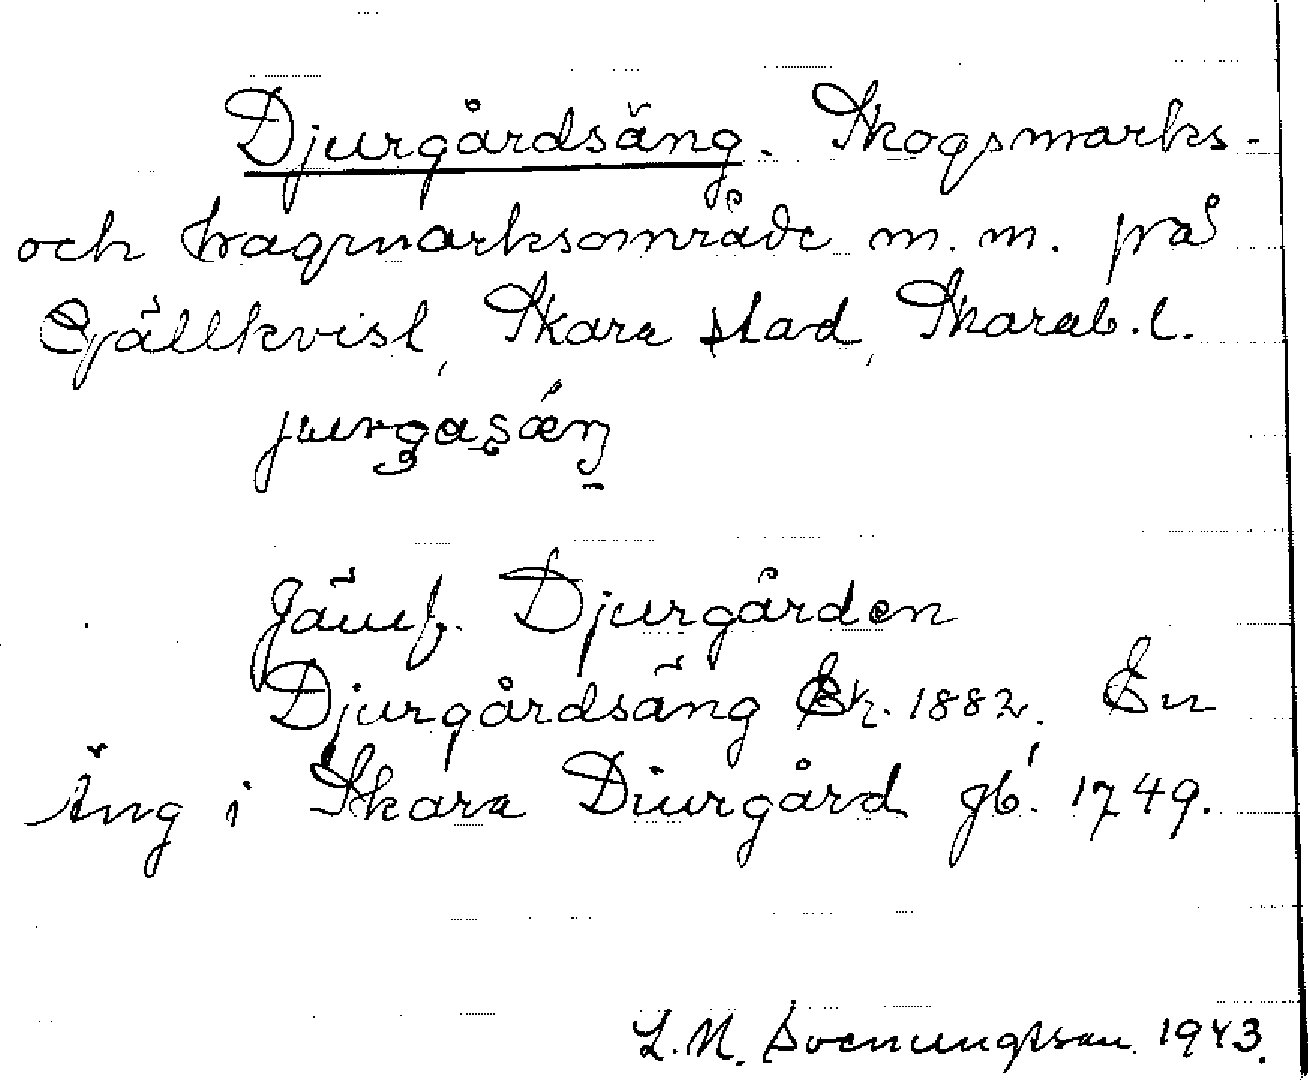 Djurgårdsäng. Skogsmarks-
och hagmarksområde m. m. på
Gällkvist, Skara stad, Skarab. l.
jurgasäŋ
Jämf. Djurgården
Djurgårdsäng Ek. 1882. En
Äng i Skara Diurgård gb. 1749.
L. M. Svenungsson 1943.